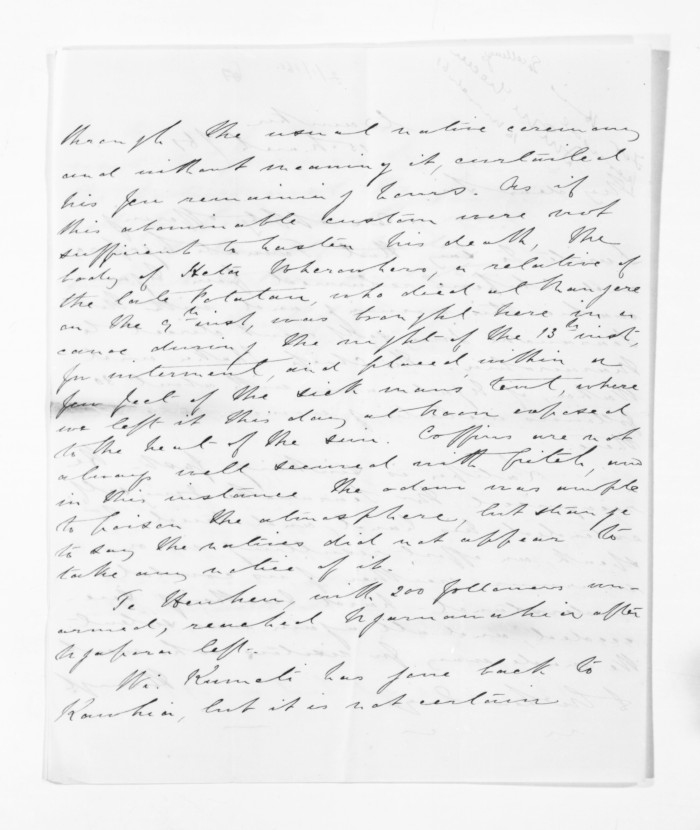 through the usual native ceremony
and without meaning it, curtailed
his few remaining hours. As if
this abominable custom were not
sufficient to hasten his death, the
body of Heta Wherowhero, a relative of
the late Potatau, who died at Mangere
on the 9th inst, was brought here in a
canoe during the night of the 13th inst,
for interment, and placed within a
few feet of the sick mans tent, where
we left it this day at noon exposed
to the heat of the sun. Coffins are not
always well seamed with pitch, and
in this instance the odour was ample
to poison the atmosphere, but strange
to say the natives did not appear to
take any notice of it.
Te Heuheu, with 200 followers un-
armed, reached Ngaruawahia after
Ngapora left.
Wi Kumete has gone back to
Kawhia, but it is not certain